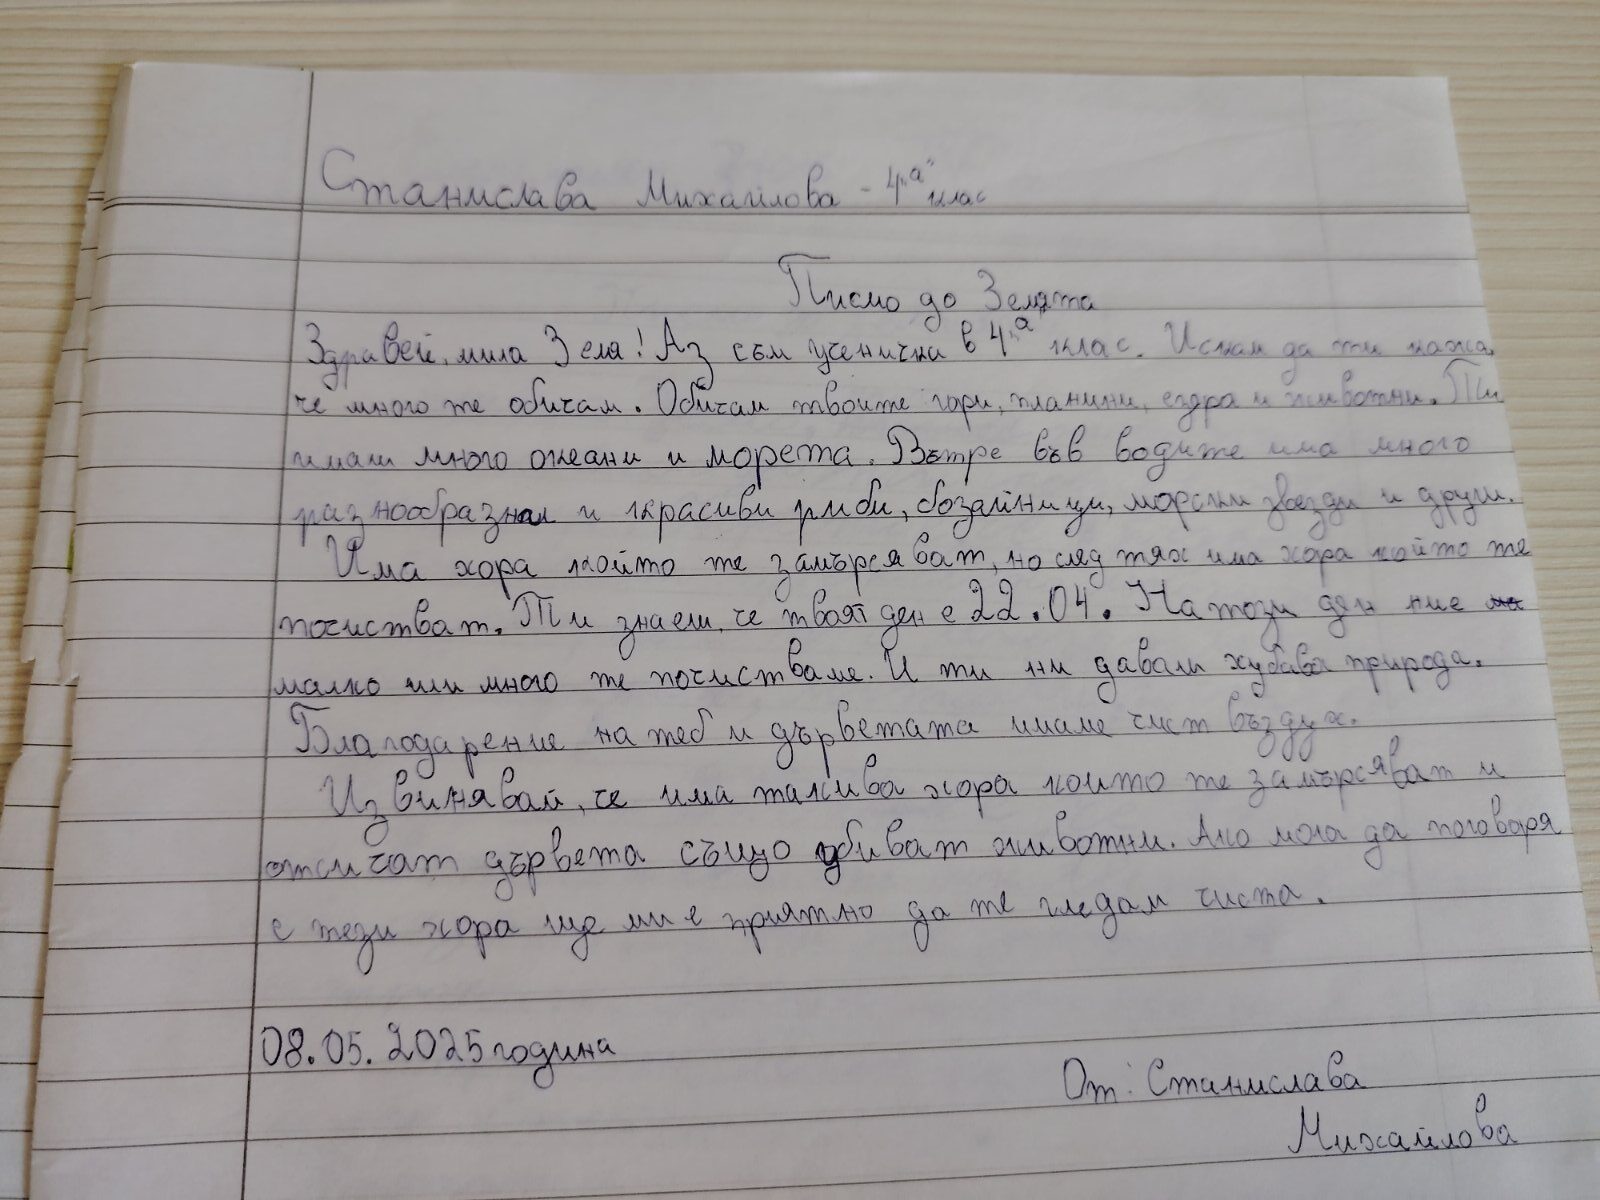 Станислава Михайлова - 4 "а" клас
Писмо до Земята
Здравей, мила Земя! Аз съм ученичка в 4 "а" клас. Искам да ти кажа,
че много те обичам. Обичам твоите гори, планини, ездра и животни. Ти
имаш много океани и морета. Вътре във водите има много
разнообразни и красиви риби, бозайници, морски звезди и други.
Има хора който те замърсяват, но след тях има хора който те
почистват. Ти знаеш, че твоят ден е 22.04. На този ден ние
малко или много те почистваме. И ти ни даваш хубава природа.
Благодарение на теб и дърветата имаме чист въздух.
Извинявай, че има такива хора които те замърсяват и
отсичат дървета също убиват животни. Ако мога да поговаря
с тези хора ще ми е приятно да те гледам чиста.
08.05.2025 година
От: Станислава
Михайлова